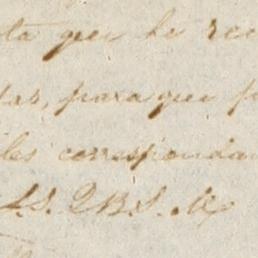 ta que he rec
tar, para que p
les correspondan
S.S. Q.B.S. M.